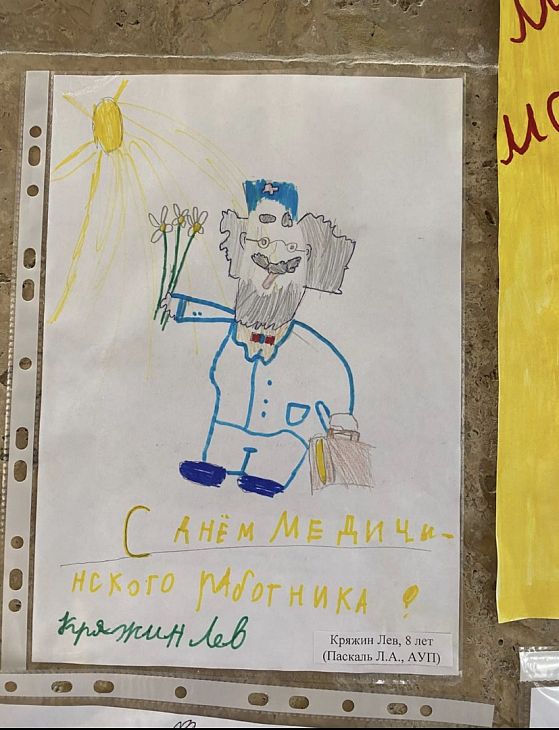 С ДНЁМ МЕДИЧИ-
НСКОГО РАБОТНИКА!
Кряжин Лев
Кряжин Лев, 8 лет
(Паскаль Л.А., АУП)